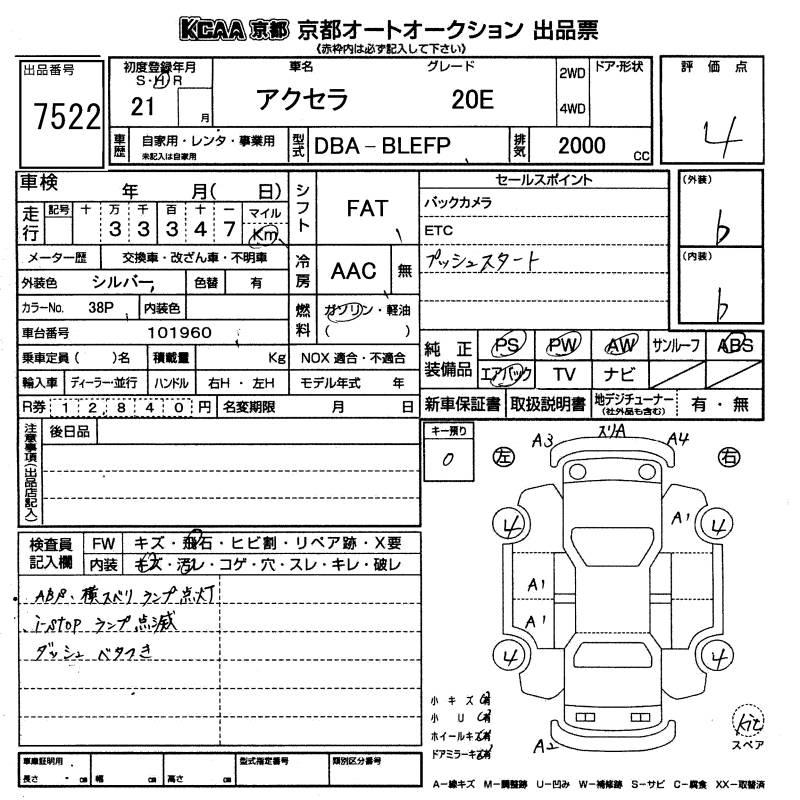 KCAA 京都 京都オートオークション 出品票
《赤枠内は必ず記入して下さい》
出品番号
7522
初度登録年月
S・H・R
21 月
車名
アクセラ
グレード
20E
2WD
4WD
ドア・形状
評価点
4
車歴
自家用・レンタ・事業用
未記入は自家用
型式
DBA－BLEFP
排気
2000 CC
車検 年 月( 日)
走行
記号 十 万 千 百 十 一
3 3 3 4 7
マイル
Km
シフト
FAT
セールスポイント
バックカメラ
ETC
プッシュスタート
(外装)
b
(内装)
b
メーター歴 交換車・改ざん車・不明車
冷房
AAC
無
外装色 シルバー 色替 有
カラーNo. 38P 内装色
燃料
ガソリン・軽油
( )
車台番号 101960
乗車定員( )名 積載量 Kg NOX 適合・不適合
純正装備品
PS PW AW サンルーフ ABS
エアバック TV ナビ
輸入車 ディーラー・並行 ハンドル 右H・左H モデル年式 年
R券 12,840 円 名変期限 月 日
新車保証書 取扱説明書 地デジチューナー
(社外品も含む)
有・無
注意事項(出品店記入)
後日品
キー預り
0
左
右
A3 スリA A4
4 4
A1
A1
A1
4 4
A2
検査員記入欄
FW キズ・飛石・ヒビ割・リペア跡・X要
内装 キズ・汚レ・コゲ・穴・スレ・キレ・破レ
ABS、横スベリ ランプ点灯
i-STOP ランプ点滅
ダッシュ ベタつき
小キズ 有
小U 有
ホイールキズ 有
ドアミラーキズ 有
kit
スペア
車庫証明用
長さ cm 幅 cm 高さ cm
型式指定番号
類別区分番号
A－線キズ M－調整跡 U－凹み W－補修跡 S－サビ C－腐食 XX－取替済